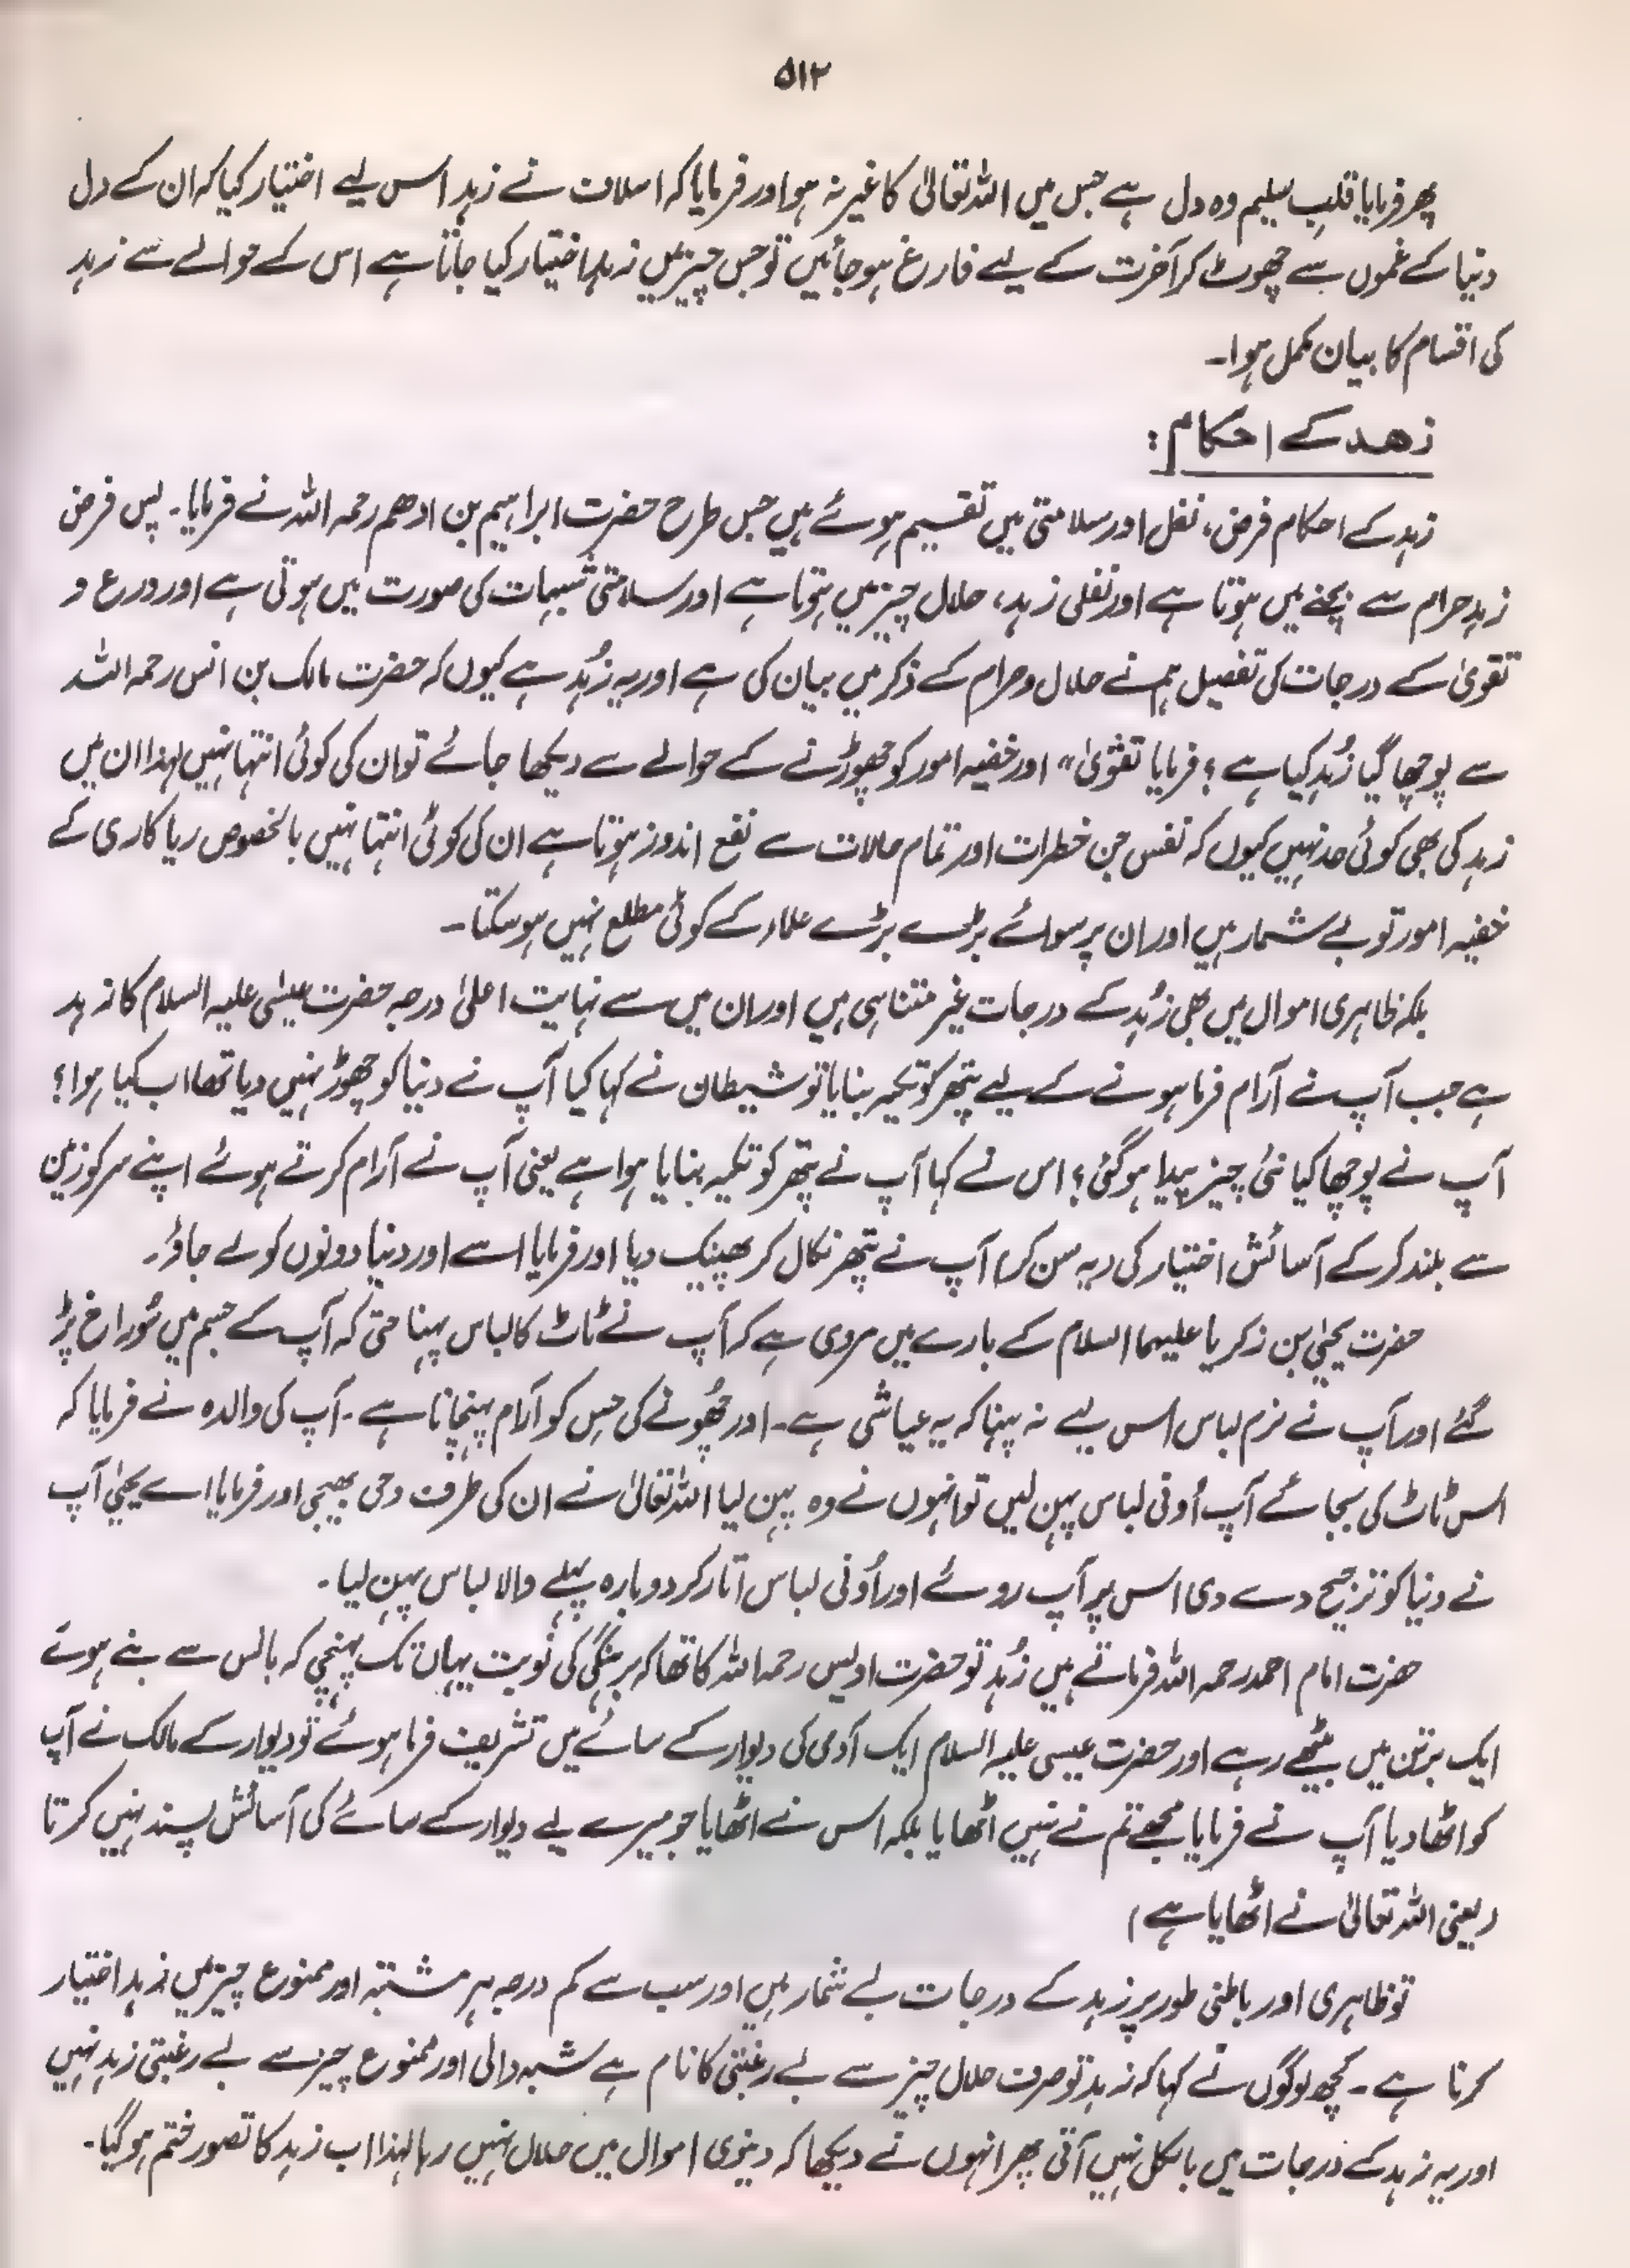 ۵۱۲
پھر فرمایا قلبِ سلیم وہ دل ہے جس میں اللہ تعالیٰ کا غیر نہ ہو اور فرمایا کہ اسلاف نے زہد اس لیے اختیار کیا کہ ان کے دل
دنیا کے غموں سے چھوٹ کر آخرت کے لیے فارغ ہو جائیں تو جس چیز میں زہد اختیار کیا جاتا ہے اس کے حوالے سے زہد
کی اقسام کا بیان مکمل ہوا۔
زھد کے احکام:
زہد کے احکام فرض، نفل اور سلامتی میں تقسیم ہوئے ہیں جس طرح حضرت ابراہیم بن ادھم رحمہ اللہ نے فرمایا۔ پس فرض
زہد حرام سے بچنے میں ہوتا ہے اور نفلی زہد، حلال چیز میں ہوتا ہے اور سلامتی شبہات کی صورت میں ہوتی ہے اور ورع و
تقویٰ کے درجات کی تفصیل ہم نے حلال و حرام کے ذکر میں بیان کی ہے اور یہ زُہد ہے کیوں کہ حضرت مالک بن انس رحمہ اللہ
سے پوچھا گیا زُہد کیا ہے؟ فرمایا تقویٰ" اور خفیہ امور کو چھوڑنے کے حوالے سے دیکھا جائے تو ان کی کوئی انتہا نہیں لہذا ان میں
زہد کی بھی کوئی حد نہیں کیوں کہ نفس جن خطرات اور تمام حالات سے نفع اندوز ہوتا ہے ان کی کوئی انتہا نہیں بالخصوص ریا کاری کے
خفیہ امور تو بے شمار ہیں اور ان پر سوائے بڑے بڑے علماء کے کوئی مطلع نہیں ہو سکتا۔
بلکہ ظاہری اموال میں بھی زُہد کے درجات غیر متناہی ہیں اور ان میں سے نہایت اعلیٰ درجہ حضرت عیسٰی علیہ السلام کا زہد
ہے جب آپ نے آرام فرما ہونے کے لیے پتھر کو تکیہ بنایا تو شیطان نے کہا کیا آپ نے دنیا کو چھوڑ نہیں دیا تھا اب کیا ہوا؟
آپ نے پوچھا کیا نئی چیز پیدا ہو گئی؟ اس نے کہا آپ نے پتھر کو تکیہ بنایا ہوا ہے یعنی آپ نے آرام کرتے ہوئے اپنے سر کو زمین
سے بلند کر کے آسائش اختیار کی (یہ سن کر) آپ نے پتھر نکال کر پھینک دیا اور فرمایا اسے اور دنیا دونوں کو لے جاؤ۔
حضرت یحیٰی بن زکریا علیہما السلام کے بارے میں مروی ہے کہ آپ نے ٹاٹ کا لباس پہنا حتیٰ کہ آپ کے جسم میں سُوراخ پڑ
گئے اور آپ نے نرم لباس اس لیے نہ پہنا کہ یہ عیاشی ہے۔ اور چھُونے کی حِس کو آرام پہنچانا ہے۔ آپ کی والدہ نے فرمایا کہ
اس ٹاٹ کی بجائے آپ اُونی لباس پہن لیں تو انہوں نے وہ پہن لیا اللہ تعالیٰ نے ان کی طرف وحی بھیجی اور فرمایا اے یحیٰی آپ
نے دنیا کو ترجیح دے دی اس پر آپ روئے اور اُونی لباس اتار کر دوبارہ پہلے والا لباس پہن لیا۔
حضرت امام احمد رحمہ اللہ فرماتے ہیں زُہد تو حضرت اویس رحمہ اللہ کا تھا کہ برہنگی کی نوبت یہاں تک پہنچی کہ بانس سے بنے ہوئے
ایک برتن میں بیٹھے رہے اور حضرت عیسی علیہ السلام ایک آدمی کی دیوار کے سائے میں تشریف فرما ہوئے تو دیوار کے مالک نے آپ
کو اٹھا دیا آپ نے فرمایا مجھے تم نے نہیں اٹھایا بلکہ اس نے اٹھایا جو میرے لیے دیوار کے سائے کی آسائش پسند نہیں کرتا
(یعنی اللہ تعالیٰ نے اٹھایا ہے)
تو ظاہری اور باطنی طور پر زہد کے درجات بے شمار ہیں اور سب سے کم درجہ ہر مشتبہ اور ممنوع چیز میں زہد اختیار
کرنا ہے۔ کچھ لوگوں نے کہا کہ زہد تو صرف حلال چیز سے بے رغبتی کا نام ہے شبہ والی اور ممنوع چیز سے بے رغبتی زہد نہیں
اور یہ زہد کے درجات میں بالکل نہیں آتی پھر انہوں نے دیکھا کہ دنیوی اموال میں حلال نہیں رہا لہذا اب زہد کا تصور ختم ہو گیا۔